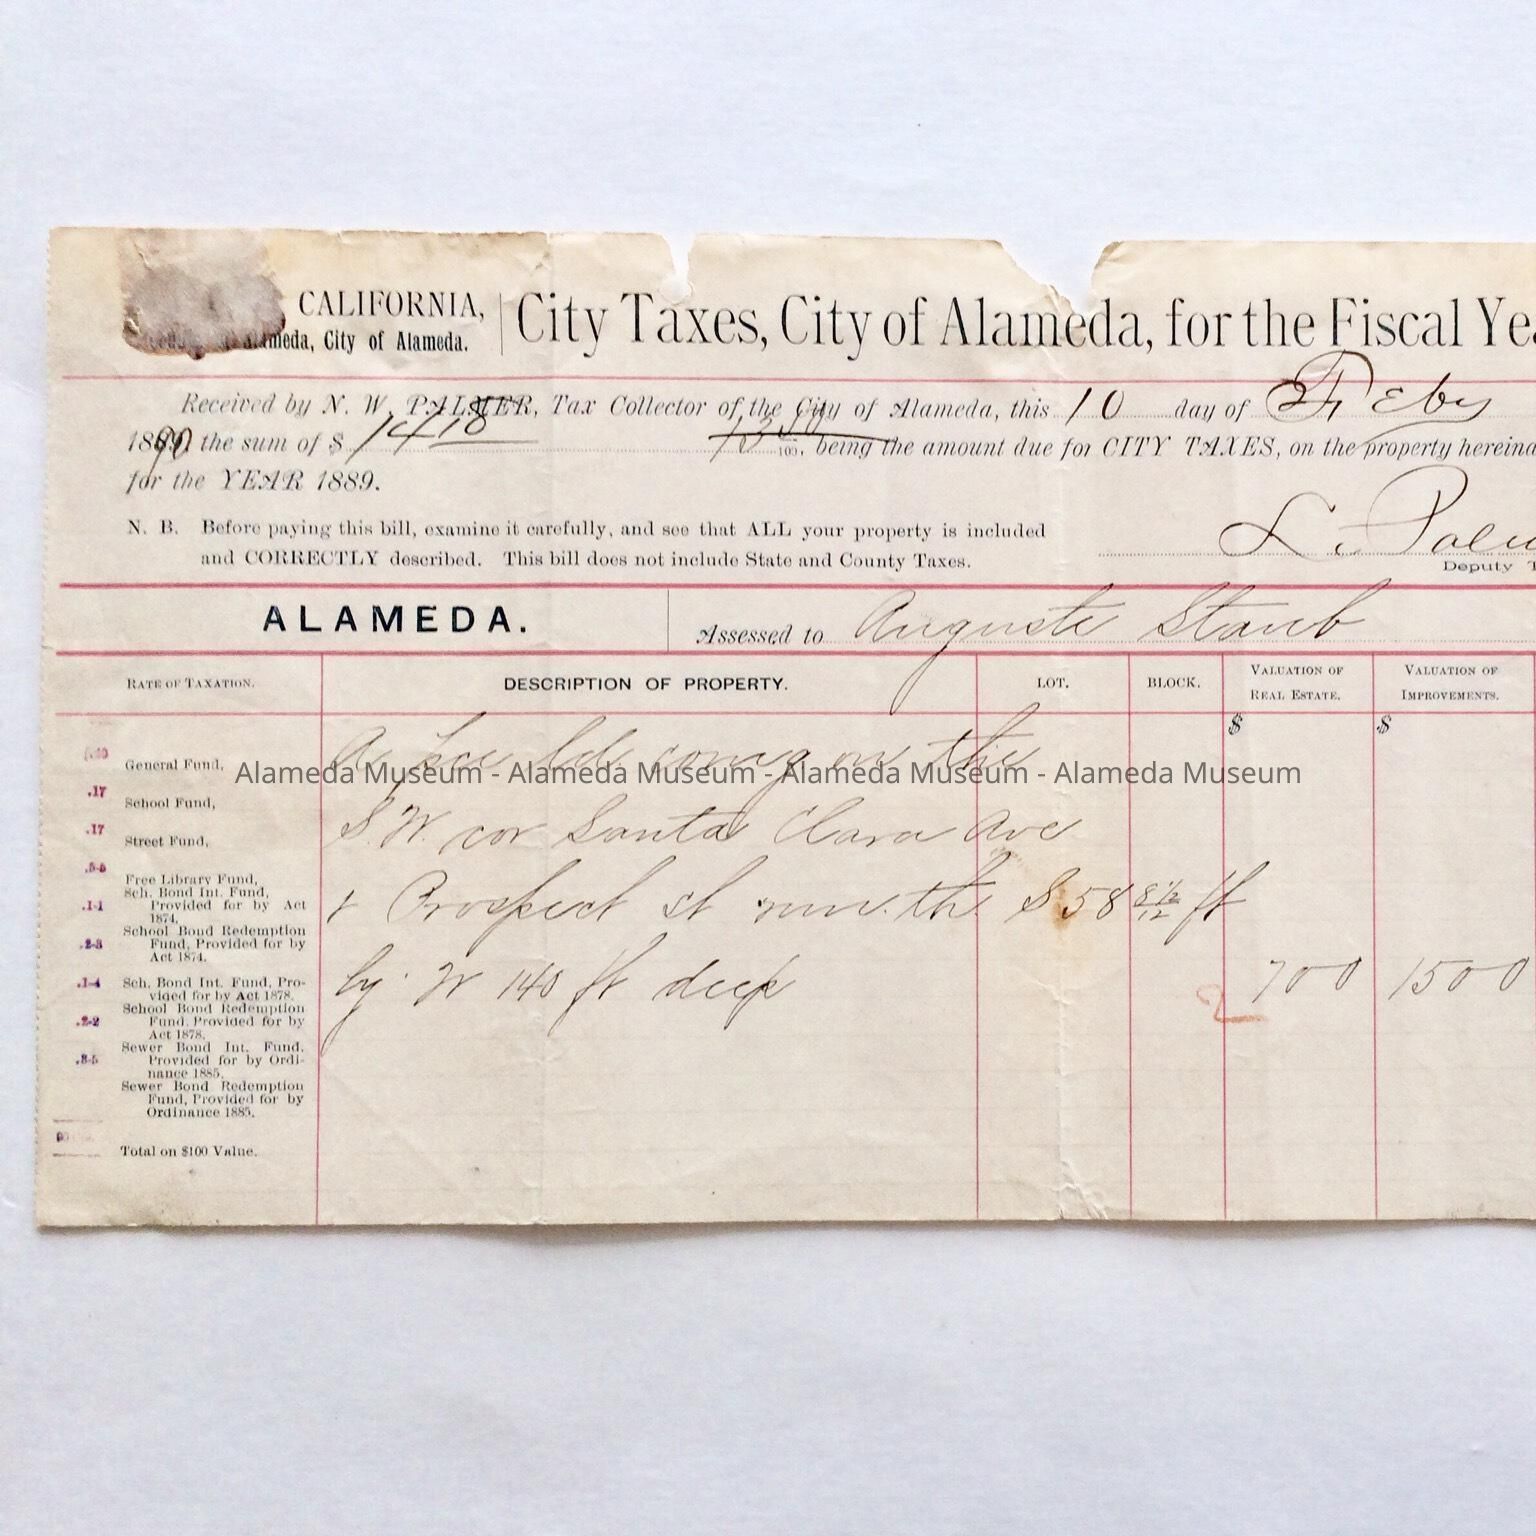 CALIFORNIA,
Alameda, City of Alameda.
City Taxes, City of Alameda, for the Fiscal Yea
Received by N. W. PALMER, Tax Collector of the City of Alameda, this 10 day of Feby
1890 the sum of $ 14 18 13 50/100, being the amount due for CITY TAXES, on the property hereina
for the YEAR 1889.
N. B. Before paying this bill, examine it carefully, and see that ALL your property is included
and CORRECTLY described. This bill does not include State and County Taxes.
L. Palm
Deputy T
ALAMEDA.
Assessed to Auguste Staub
RATE OF TAXATION.
DESCRIPTION OF PROPERTY.
LOT.
BLOCK.
VALUATION OF REAL ESTATE.
VALUATION OF IMPROVEMENTS.
$ $
General Fund,
.17
School Fund,
.17
Street Fund,
.5-5
Free Library Fund,
Sch. Bond Int. Fund,
.1-1 Provided for by Act
1874.
School Bond Redemption
.2-3 Fund, Provided for by
Act 1874.
.1-4 Sch. Bond Int. Fund, Pro-
vided for by Act 1878.
School Bond Redemption
.2-2 Fund, Provided for by
Act 1878.
Sewer Bond Int. Fund,
.3-5 Provided for by Ordi-
nance 1885.
Sewer Bond Redemption
Fund, Provided for by
Ordinance 1885.
Total on $100 Value.
A pce ld comg on the
S. W. cor Santa Clara Ave
& Prospect st run. th. S 58 8 1/2/12 ft
by W 140 ft deep
2 700 1500
Alameda Museum - Alameda Museum - Alameda Museum - Alameda Museum